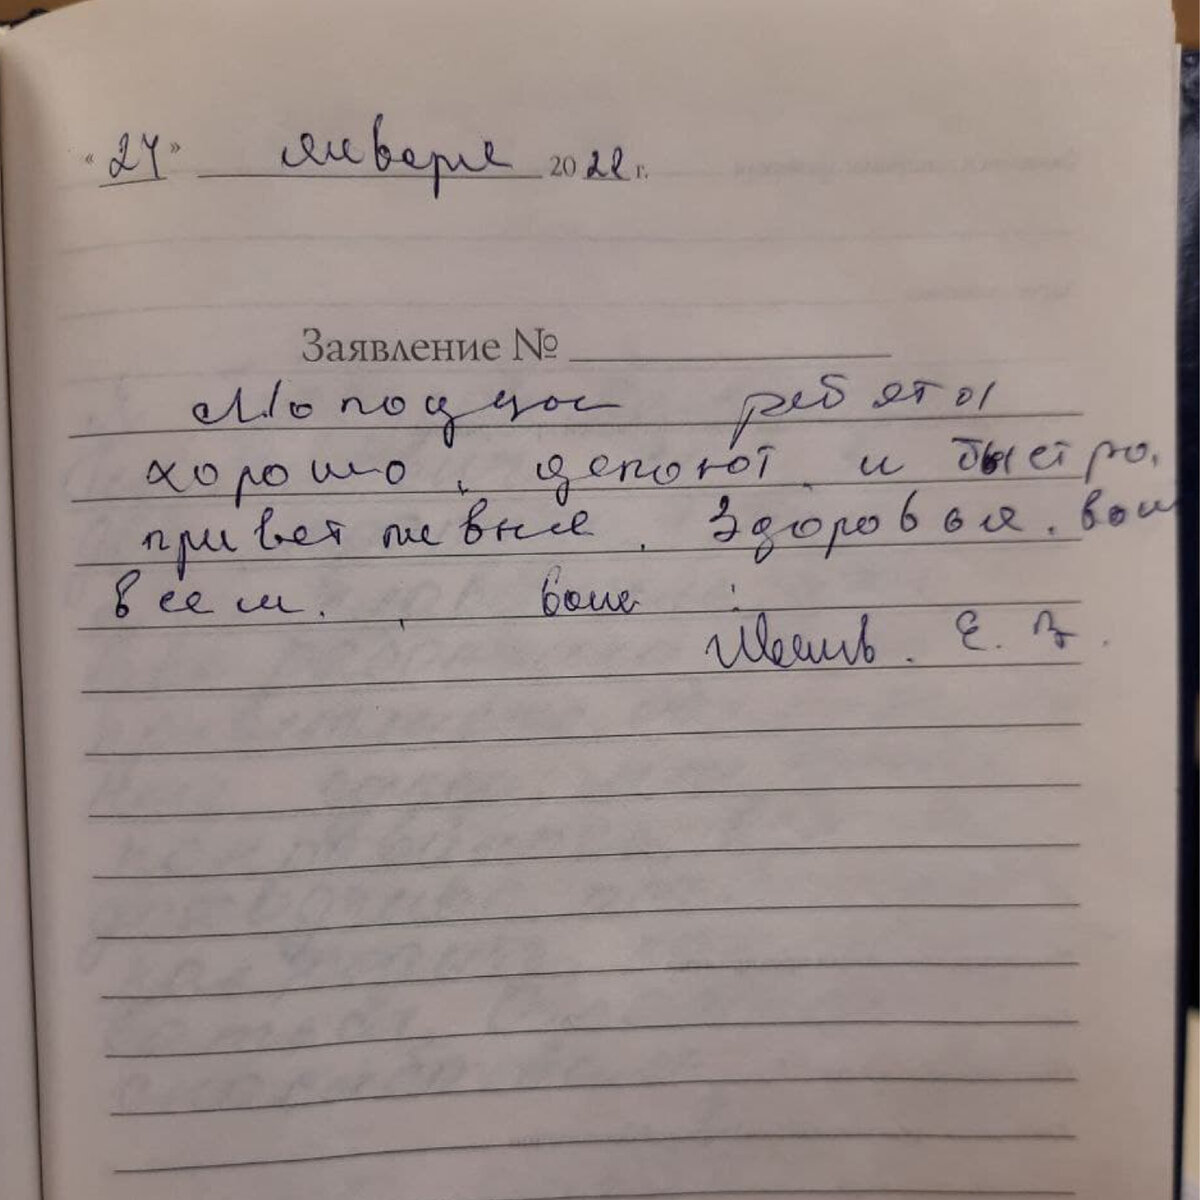 «24» января 2022 г.
Заявление №
Молодцы ребяты
хорошо, делают и быстро.
приветливые. Здоровья. вам
всем. , вам
Е. В.